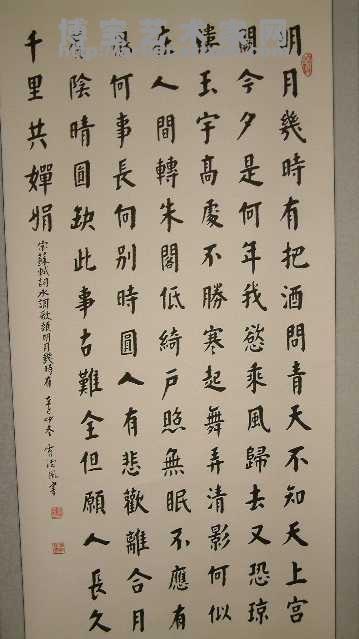 博宝艺术家网
明月幾時有把酒問青天不知天上宮
闕今夕是何年我慾乘風歸去又恐瓊
樓玉宇高處不勝寒起舞弄清影何似
在人間轉朱閣低綺戶照無眠不應有
恨何事長向別時圓人有悲歡離合月
有陰晴圓缺此事古難全但願人長久
千里共嬋娟
宋蘇軾詞水調歌頭明月幾時有 辛巳仲冬 書